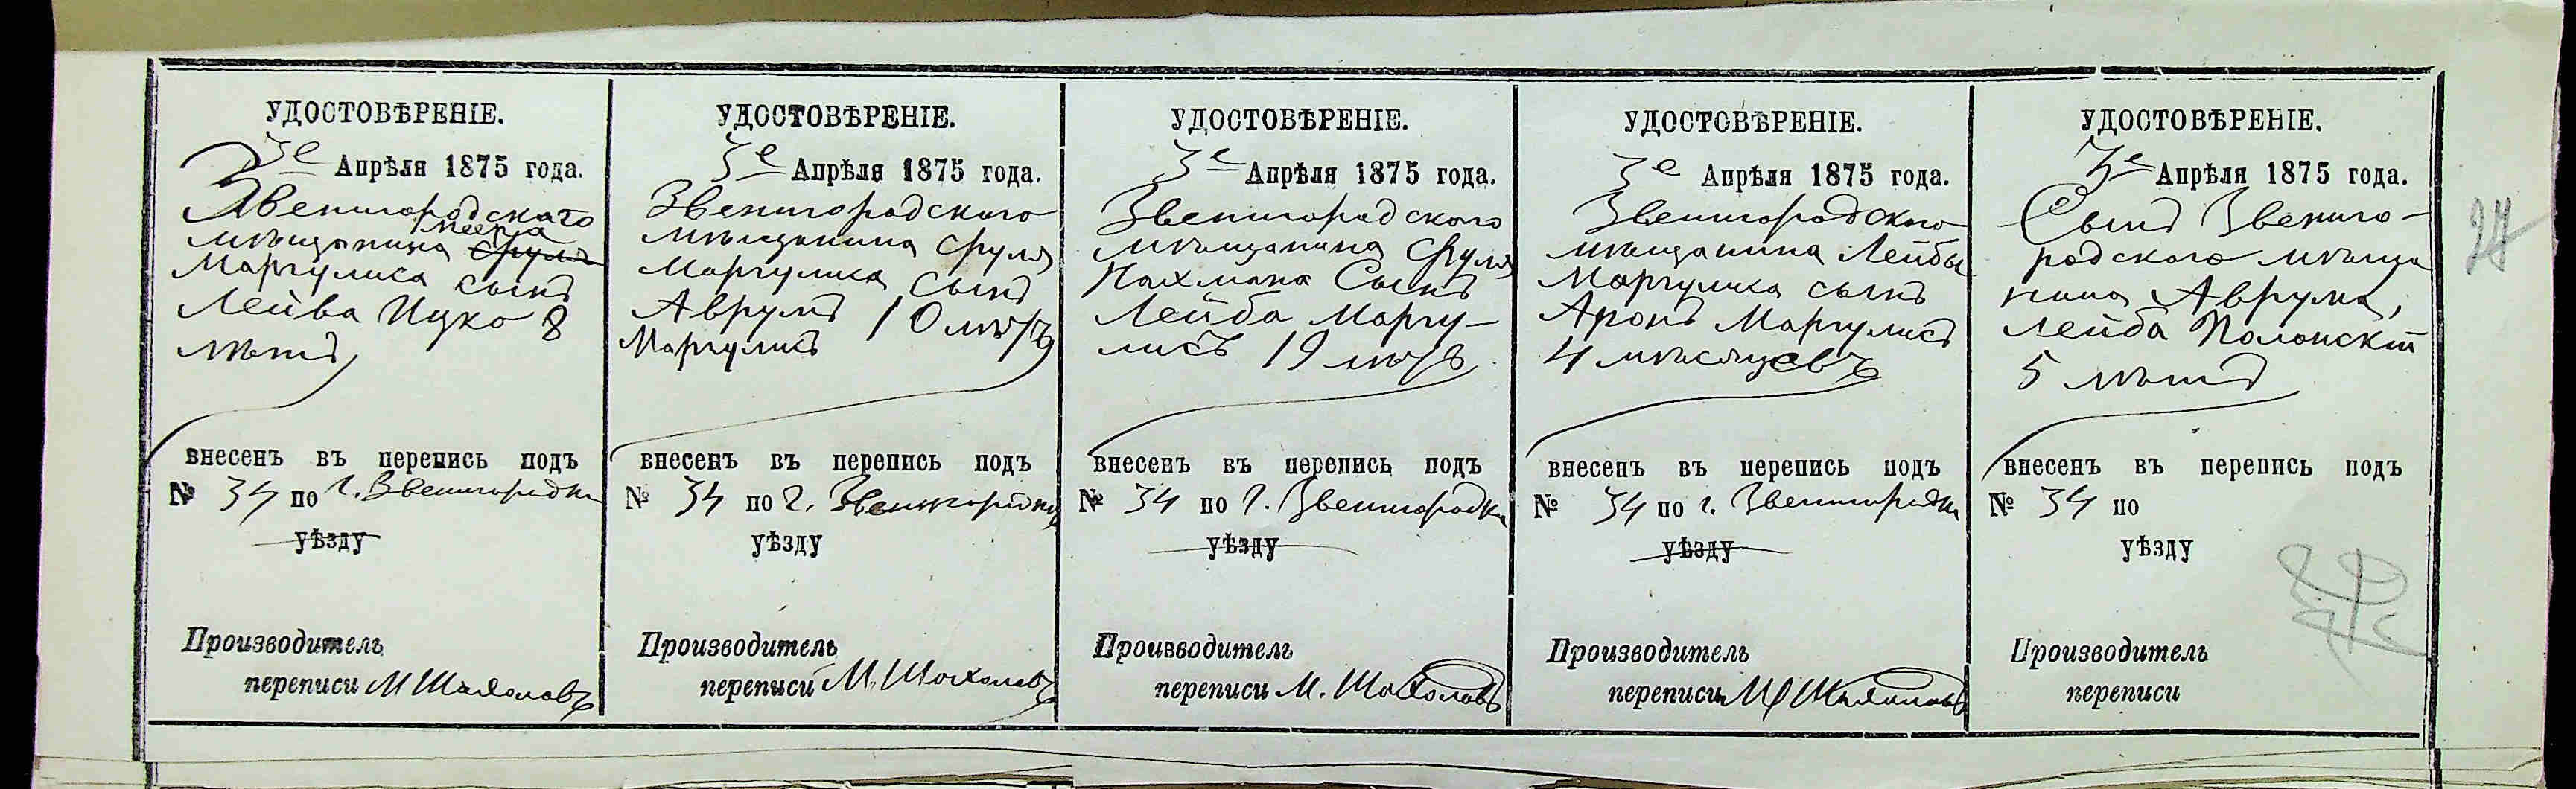 УДОСТОВѢРЕНІЕ.
3е Апрѣля 1875 года.
Звенигородскаго
Меера
мѣщанина Сруля
Маргулиса сынъ
Лейба Ицко 8
лѣтъ
внесенъ въ перепись подъ
№ 34 по г. Звенигородки
уѣзду
Производитель
переписи М
УДОСТОВѢРЕНІЕ.
3е Апрѣля 1875 года.
Звенигородского
мѣщанина Сруля
Маргулиса сынъ
Аврумъ 10 лѣтъ
Маргулисъ
внесенъ въ перепись подъ
№ 34 по г. Звенигородки
уѣзду
Производитель
переписи М.
УДОСТОВѢРЕНІЕ.
3е Апрѣля 1875 года.
Звенигородского
мѣщанина Сруля
Нахмана Сынъ
Лейба Маргу-
лисъ 19 лѣтъ
внесенъ въ перепись подъ
№ 34 по г. Звенигородки
уѣзду
Производитель
переписи М.
УДОСТОВѢРЕНІЕ.
3е Апрѣля 1875 года.
Звенигородского
мѣщанина Лейбы
Маргулиса сынъ
Аронъ Маргулисъ
4 мѣсяцевъ
внесенъ въ перепись подъ
№ 34 по г. Звенигородки
уѣзду
Производитель
переписи М
УДОСТОВѢРЕНІЕ.
3е Апрѣля 1875 года.
Сынъ Звениго-
родского мѣща
нина Аврума,
Лейба Полонскій
5 лѣтъ
внесенъ въ перепись подъ
№ 34 по
уѣзду
Производитель
переписи
27